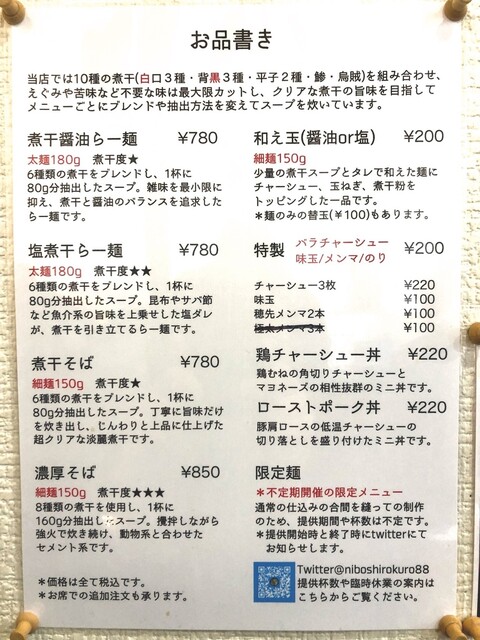 お品書き
当店では10種の煮干(白口３種・背黒３種・平子２種・鯵・烏賊)を組み合わせ、
えぐみや苦味など不要な味は最大限カットし、クリアな煮干の旨味を目指して
メニューごとにブレンドや抽出方法を変えてスープを炊いています。
煮干醤油らー麺 ¥780
太麺180g 煮干度★
6種類の煮干をブレンドし、1杯に
80g分抽出したスープ。雑味を最小限に
抑え、煮干と醤油のバランスを追求した
らー麺です。
塩煮干らー麺 ¥780
太麺180g 煮干度★★
6種類の煮干をブレンドし、1杯に
80g分抽出したスープ。昆布やサバ節
など魚介系の旨味を上乗せした塩ダレ
が、煮干を引き立てるらー麺です。
煮干そば ¥780
細麺150g 煮干度★
6種類の煮干をブレンドし、1杯に
80g分抽出したスープ。丁寧に旨味だけ
を炊き出し、じんわりと上品に仕上げた
超クリアな淡麗煮干です。
濃厚そば ¥850
細麺150g 煮干度★★★
8種類の煮干を使用し、1杯に
160g分抽出したスープ。攪拌しながら
強火で炊き続け、動物系と合わせた
セメント系です。
＊価格は全て税込です。
＊お席での追加注文も承ります。
和え玉(醤油or塩) ¥200
細麺150g
少量の煮干スープとタレで和えた麺に
チャーシュー、玉ねぎ、煮干粉を
トッピングした一品です。
＊麺のみの替玉(¥100)もあります。
特製 バラチャーシュー ¥200
味玉/メンマ/のり
チャーシュー3枚 ¥220
味玉 ¥100
穂先メンマ2本 ¥100
極太メンマ3本 ¥100
鶏チャーシュー丼 ¥220
鶏むねの角切りチャーシューと
マヨネーズの相性抜群のミニ丼です。
ローストポーク丼 ¥220
豚肩ロースの低温チャーシューの
切り落としを盛り付けたミニ丼です。
限定麺
＊不定期開催の限定メニュー
通常の仕込みの合間を縫っての制作
のため、提供期間や杯数は不定です。
＊提供開始時と終了時にtwitterにて
お知らせします。
Twitter@niboshirokuro88
提供杯数や臨時休業の案内は
こちらからご覧ください。